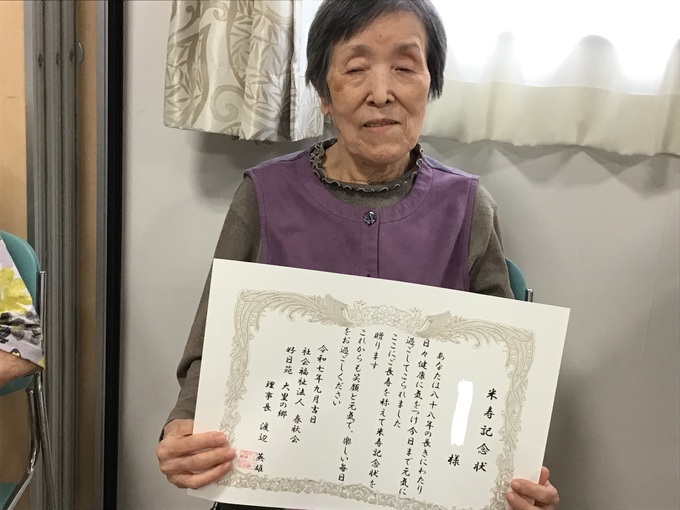 米寿記念状
様
あなたは八十八年の長きにわたり
日々健康に気をつけ今日まで元気に
過ごしてこられました
ここにご長寿を称えて米寿記念状を
贈ります
これからも笑顔と元気で、楽しい毎日
をお過ごしください
令和七年九月吉日
社会福祉法人 春秋会
好日苑 大里の郷
理事長 渡辺 英雄